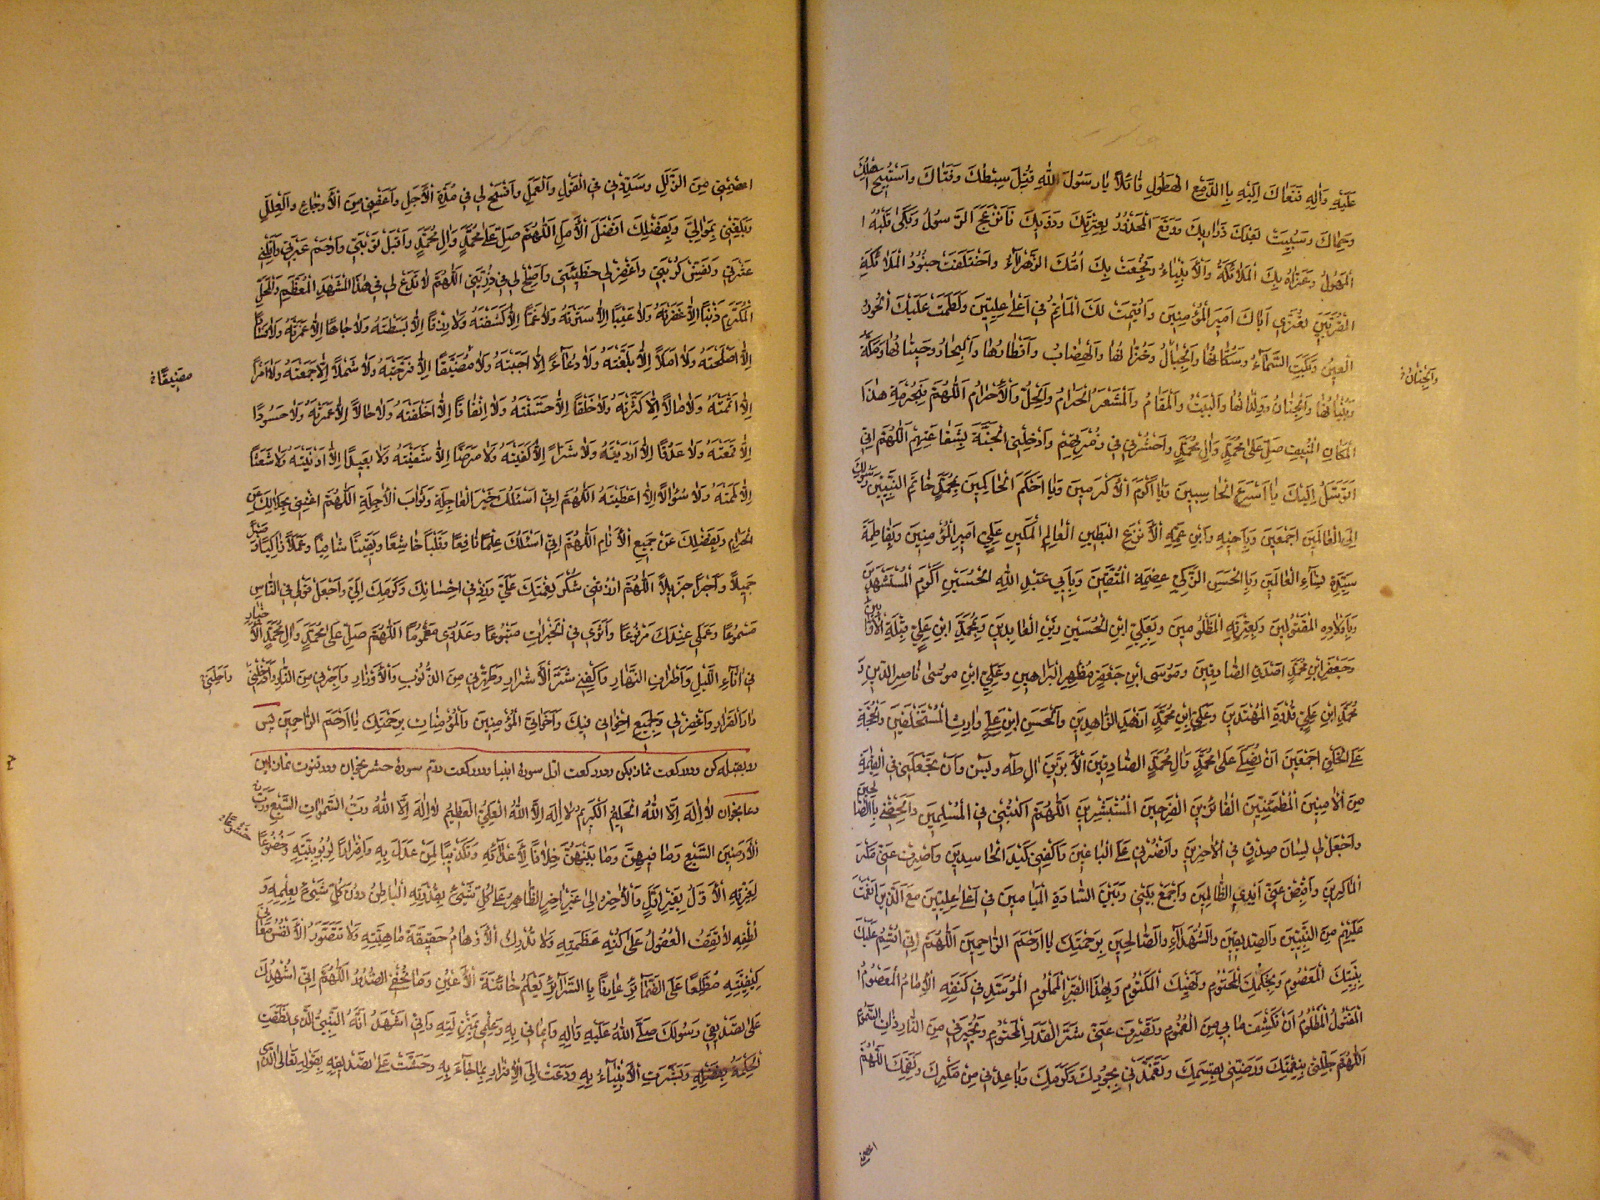 عَلَيْهِ وَآلِهِ فَنَعَاكَ إِلَيْهِ بِالدَّمْعِ الْهَطُولِ قَائِلًا يَا رَسُولَ اللهِ قُتِلَ سِبْطُكَ وَفَتَاكَ وَاسْتُبِيحَ أَهْلُكَ
وَحِمَاكَ وَسُبِيَتْ بَعْدَكَ ذَرَارِيكَ وَوَقَعَ الْمَحْذُورُ بِعِتْرَتِكَ وَذَوِيكَ فَانْزَعَجَ الرَّسُولُ وَبَكَى قَلْبُهُ
الْمَهُولُ وَعَزَّاهُ بِكَ الْمَلَائِكَةُ وَالْأَنْبِيَاءُ وَفُجِعَتْ بِكَ أُمُّكَ الزَّهْرَاءُ وَاخْتَلَفَتْ جُنُودُ الْمَلَائِكَةِ
الْمُقَرَّبِينَ تُعَزِّي أَبَاكَ أَمِيرَ الْمُؤْمِنِينَ وَأُقِيمَتْ لَكَ الْمَآتِمُ فِي أَعْلَى عِلِّيِّينَ وَلَطَمَتْ عَلَيْكَ الْحُورُ
الْعِينُ وَبَكَتِ السَّمَاءُ وَسُكَّانُهَا وَالْجِبَالُ وَخُزَّانُهَا وَالْهِضَابُ وَأَقْطَارُهَا وَالْبِحَارُ وَحِيتَانُهَا وَمَكَّةُ
وَبُنْيَانُهَا وَالْجِنَانُ وَوِلْدَانُهَا وَالْبَيْتُ وَالْمَقَامُ وَالْمَشْعَرُ الْحَرَامُ وَالْحِلُّ وَالْإِحْرَامُ اللّٰهُمَّ فَبِحُرْمَةِ هٰذَا
وَالْجِنَانُ
الْمَكَانِ الْمُنِيفِ صَلِّ عَلَى مُحَمَّدٍ وَآلِ مُحَمَّدٍ وَاحْشُرْنِي فِي زُمْرَتِهِمْ وَأَدْخِلْنِي الْجَنَّةَ بِشَفَاعَتِهِمْ اللّٰهُمَّ إِنِّي
أَتَوَسَّلُ إِلَيْكَ يَا أَسْرَعَ الْحَاسِبِينَ وَيَا أَكْرَمَ الْأَكْرَمِينَ وَيَا أَحْكَمَ الْحَاكِمِينَ بِمُحَمَّدٍ خَاتَمِ النَّبِيِّينَ رَسُولِكَ
إِلَى الْعَالَمِينَ أَجْمَعِينَ وَبِأَخِيهِ وَابْنِ عَمِّهِ الْأَنْزَعِ الْبَطِينِ الْعَالِمِ الْمَكِينِ عَلِيٍّ أَمِيرِ الْمُؤْمِنِينَ وَبِفَاطِمَةَ
سَيِّدَةِ نِسَاءِ الْعَالَمِينَ وَبِالْحَسَنِ الزَّكِيِّ عِصْمَةِ الْمُتَّقِينَ وَبِأَبِي عَبْدِ اللهِ الْحُسَيْنِ أَكْرَمِ الْمُسْتَشْهَدِينَ
وَبِأَوْلَادِهِ الْمَقْتُولِينَ وَبِعِتْرَتِهِ الْمَظْلُومِينَ وَبِعَلِيِّ ابْنِ الْحُسَيْنِ زَيْنِ الْعَابِدِينَ وَبِمُحَمَّدِ ابْنِ عَلِيٍّ قِبْلَةِ الْأَوَّابِينَ
جَعْفَرِ ابْنِ مُحَمَّدٍ أَصْدَقِ الصَّادِقِينَ وَمُوسَى ابْنِ جَعْفَرٍ مُظْهِرِ الْبَرَاهِينِ وَعَلِيِّ ابْنِ مُوسَى نَاصِرِ الدِّينِ وَ
مُحَمَّدِ ابْنِ عَلِيٍّ قُدْوَةِ الْمُهْتَدِينَ وَعَلِيِّ ابْنِ مُحَمَّدٍ أَزْهَدِ الزَّاهِدِينَ وَالْحَسَنِ ابْنِ عَلِيٍّ وَارِثِ الْمُسْتَخْلَفِينَ وَالْحُجَّةِ
عَلَى الْخَلْقِ أَجْمَعِينَ أَنْ تُصَلِّيَ عَلَى مُحَمَّدٍ وَآلِ مُحَمَّدٍ الصَّادِقِينَ الْأَبَرِّينَ آلِ طه وَيس وَأَنْ تَجْعَلَنِي فِي الْقِيٰمَةِ
مِنَ الْآمِنِينَ الْمُطْمَئِنِّينَ الْفَائِزِينَ الْفَرِحِينَ الْمُسْتَبْشِرِينَ اللّٰهُمَّ اكْتُبْنِي فِي الْمُسْلِمِينَ وَأَلْحِقْنِي بِالصَّالِحِينَ
وَاجْعَلْ لِي لِسَانَ صِدْقٍ فِي الْآخِرِينَ وَانْصُرْنِي عَلَى الْبَاغِينَ وَاكْفِنِي كَيْدَ الْحَاسِدِينَ وَاصْرِفْ عَنِّي مَكْرَ
الْمَاكِرِينَ وَاقْبِضْ عَنِّي أَيْدِيَ الظَّالِمِينَ وَاجْمَعْ بَيْنِي وَبَيْنَ السَّادَةِ الْمَيَامِينِ فِي أَعْلَى عِلِّيِّينَ مَعَ الَّذِينَ أَنْعَمْتَ
عَلَيْهِمْ مِنَ النَّبِيِّينَ وَالصِّدِّيقِينَ وَالشُّهَدَاءِ وَالصَّالِحِينَ بِرَحْمَتِكَ يَا أَرْحَمَ الرَّاحِمِينَ اللّٰهُمَّ إِنِّي أُقْسِمُ عَلَيْكَ
بِنَبِيِّكَ الْمَعْصُومِ وَبِحُكْمِكَ الْمَحْتُومِ وَنَهْيِكَ الْمَكْتُومِ وَبِهٰذَا الْقَبْرِ الْمَلْمُومِ الْمُوَسَّدِ فِي كَنَفِهِ الْإِمَامُ الْمَعْصُومُ
الْمَقْتُولُ الْمَظْلُومُ أَنْ تَكْشِفَ مَا بِي مِنَ الْغُمُومِ وَتَصْرِفَ عَنِّي شَرَّ الْقَدَرِ الْمَحْتُومِ وَتُجِيرَنِي مِنَ النَّارِ ذَاتِ السَّمُومِ
اللّٰهُمَّ جَلِّلْنِي بِنِعْمَتِكَ وَرَضِّنِي بِقِسْمِكَ وَتَغَمَّدْنِي بِجُودِكَ وَكَرَمِكَ وَبَاعِدْنِي مِنْ مَكْرِكَ وَنَقِمَتِكَ اللّٰهُمَّ
اعصمنی
اعْصِمْنِي مِنَ الزَّلَلِ وَسَدِّدْنِي فِي الْقَوْلِ وَالْعَمَلِ وَافْسَحْ لِي فِي مُدَّةِ الْأَجَلِ وَأَعْفِنِي مِنَ الْأَوْجَاعِ وَالْعِلَلِ
وَبَلِّغْنِي بِمَوَالِيَّ وَبِفَضْلِكَ أَفْضَلَ الْأَمَلِ اللّٰهُمَّ صَلِّ عَلَى مُحَمَّدٍ وَآلِ مُحَمَّدٍ وَاقْبَلْ تَوْبَتِي وَارْحَمْ عَبْرَتِي وَأَقِلْنِي
عَثْرَتِي وَنَفِّسْ كُرْبَتِي وَاغْفِرْ لِي خَطِيئَتِي وَأَصْلِحْ لِي فِي ذُرِّيَّتِي اللّٰهُمَّ لَا تَدَعْ لِي فِي هٰذَا الْمَشْهَدِ الْمُعَظَّمِ وَالْمَحَلِّ
الْمُكَرَّمِ ذَنْبًا إِلَّا غَفَرْتَهُ وَلَا عَيْبًا إِلَّا سَتَرْتَهُ وَلَا غَمًّا إِلَّا كَشَفْتَهُ وَلَا رِزْقًا إِلَّا بَسَطْتَهُ وَلَا جَاهًا إِلَّا عَمَرْتَهُ وَلَا فَسَادًا
إِلَّا أَصْلَحْتَهُ وَلَا أَمَلًا إِلَّا بَلَّغْتَهُ وَلَا دُعَاءً إِلَّا أَجَبْتَهُ وَلَا مُضَيَّقًا إِلَّا فَرَّجْتَهُ وَلَا شَمْلًا إِلَّا جَمَعْتَهُ وَلَا أَمْرًا
مضيقًا
إِلَّا أَتْمَمْتَهُ وَلَا مَالًا إِلَّا كَثَّرْتَهُ وَلَا خُلُقًا إِلَّا حَسَّنْتَهُ وَلَا إِنْفَاقًا إِلَّا أَخْلَفْتَهُ وَلَا حَالًا إِلَّا عَمَرْتَهُ وَلَا حَسُودًا
إِلَّا قَمَعْتَهُ وَلَا عَدُوًّا إِلَّا أَرْدَيْتَهُ وَلَا شَرًّا إِلَّا كَفَيْتَهُ وَلَا مَرَضًا إِلَّا شَفَيْتَهُ وَلَا بَعِيدًا إِلَّا أَدْنَيْتَهُ وَلَا شَعَثًا
إِلَّا لَمَمْتَهُ وَلَا سُؤَالًا إِلَّا أَعْطَيْتَهُ اللّٰهُمَّ إِنِّي أَسْئَلُكَ خَيْرَ الْعَاجِلَةِ وَثَوَابَ الْآجِلَةِ اللّٰهُمَّ أَغْنِنِي بِحَلَالِكَ عَنِ
الْحَرَامِ وَبِفَضْلِكَ عَنْ جَمِيعِ الْأَنَامِ اللّٰهُمَّ إِنِّي أَسْئَلُكَ عِلْمًا نَافِعًا وَقَلْبًا خَاشِعًا وَيَقِينًا شَافِيًا وَعَمَلًا زَاكِيًا وَصَبْرًا
جَمِيلًا وَأَجْرًا جَزِيلًا اللّٰهُمَّ ارْزُقْنِي شُكْرَ نِعْمَتِكَ عَلَيَّ وَزِدْ فِي إِحْسَانِكَ وَكَرَمِكَ إِلَيَّ وَاجْعَلْ قَوْلِي فِي النَّاسِ
مَسْمُوعًا وَعَمَلِي عِنْدَكَ مَرْفُوعًا وَأَثَرِي فِي الْخَيْرَاتِ مَتْبُوعًا وَعَدُوِّي مَقْمُوعًا اللّٰهُمَّ صَلِّ عَلَى مُحَمَّدٍ وَآلِ مُحَمَّدٍ الْأَخْيَارِ
فِي آنَاءِ اللَّيْلِ وَأَطْرَافِ النَّهَارِ وَاكْفِنِي شَرَّ الْأَشْرَارِ وَطَهِّرْنِي مِنَ الذُّنُوبِ وَالْأَوْزَارِ وَأَجِرْنِي مِنَ النَّارِ وَأَدْخِلْنِي
وَأَحِلَّنِي
دَارَ الْقَرَارِ وَاغْفِرْ لِي وَلِجَمِيعِ إِخْوَانِي فِيكَ وَأَخَوَاتِيَ الْمُؤْمِنِينَ وَالْمُؤْمِنَاتِ بِرَحْمَتِكَ يَا أَرْحَمَ الرَّاحِمِينَ پس
رو بقبله کن و دو رکعت نماز بکن و در رکعت اول سوره انبیا و در رکعت دویم سوره حشر بخوان و در قنوت نماز این
دعا بخوان لَا إِلٰهَ إِلَّا اللهُ الْحَلِيمُ الْكَرِيمُ لَا إِلٰهَ إِلَّا اللهُ الْعَلِيُّ الْعَظِيمُ لَا إِلٰهَ إِلَّا اللهُ رَبُّ السَّمٰوَاتِ السَّبْعِ وَرَبُّ
الْأَرَضِينَ السَّبْعِ وَمَا فِيهِنَّ وَمَا بَيْنَهُنَّ خِلَافًا لِأَعْدَائِهِ وَتَكْذِيبًا لِمَنْ عَدَلَ بِهِ وَإِقْرَارًا لِرُبُوبِيَّتِهِ وَخُضُوعًا
لِعِزَّتِهِ الْأَوَّلُ بِغَيْرِ أَوَّلٍ وَالْآخِرُ إِلَى غَيْرِ آخِرٍ الظَّاهِرُ عَلَى كُلِّ شَيْءٍ بِقُدْرَتِهِ الْبَاطِنُ دُونَ كُلِّ شَيْءٍ بِعِلْمِهِ وَ
لُطْفِهِ لَا تَقِفُ الْعُقُولُ عَلَى كُنْهِ عَظَمَتِهِ وَلَا تُدْرِكُ الْأَوْهَامُ حَقِيقَةَ مَاهِيَّتِهِ وَلَا تَتَصَوَّرُ الْأَنْفُسُ مَعَانِيَ
كَيْفِيَّتِهِ مُطَّلِعًا عَلَى الضَّمَائِرِ عَارِفًا بِالسَّرَائِرِ يَعْلَمُ خَائِنَةَ الْأَعْيُنِ وَمَا تُخْفِي الصُّدُورُ اللّٰهُمَّ إِنِّي أُشْهِدُكَ
عَلَى تَصْدِيقِي رَسُولَكَ صَلَّى اللهُ عَلَيْهِ وَآلِهِ وَإِيمَانِي بِهِ وَعِلْمِي بِمَنْزِلَتِهِ وَإِنِّي أَشْهَدُ أَنَّهُ النَّبِيُّ الَّذِي نَطَقَتِ
الْحِكْمَةُ بِفَضْلِهِ وَبَشَّرَتِ الْأَنْبِيَاءُ بِهِ وَدَعَتْ إِلَى الْإِقْرَارِ بِمَا جَاءَ بِهِ وَحَثَّتْ عَلَى تَصْدِيقِهِ بِقَوْلِهِ تَعَالَى الَّذِي